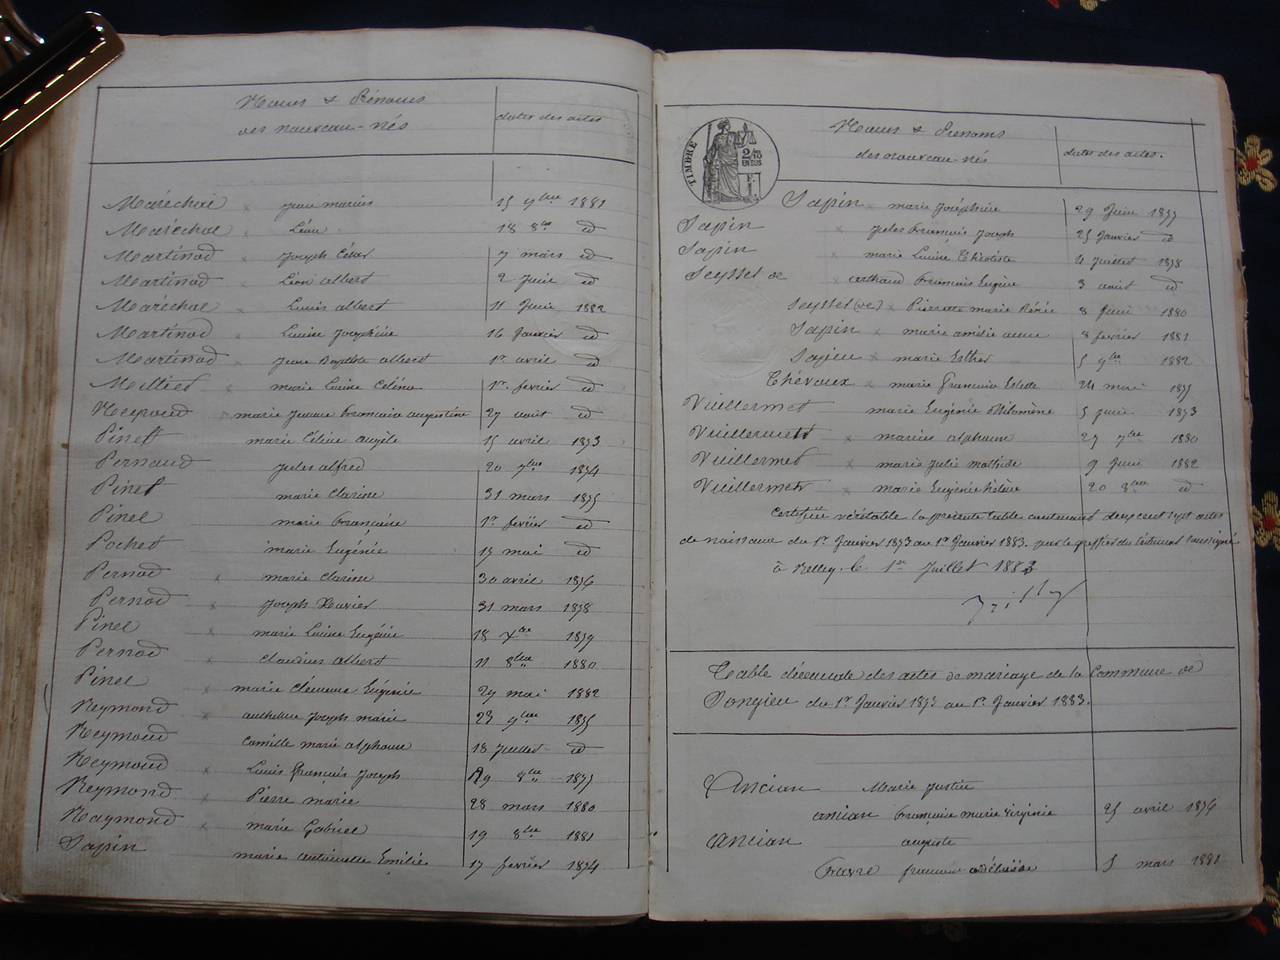 Noms & Prénoms
des nouveau-nés
dates des actes
Maréchal Jean marius 15 9bre 1881
Maréchal Léon 18 8bre id
Martinod Joseph César 7 mars id
Martinod Léon albert 2 Juin id
Maréchal Louis albert 11 Juin 1882
Martinod Louise Joséphine 16 Janvier id
Martinod Jean Baptiste albert 1er avril id
Milliet marie Louise Célina 1er fevrier id
Neyroud marie Jeanne francoise augustine 27 août id
Pinet marie Céline angèle 15 avril 1873
Pernaud Jules alfred 20 7bre 1874
Pinet marie Clarisse 31 mars 1875
Pinet marie françoise 1er fevrier id
Pochet marie Eugénie 15 mai id
Pernod marie Clarisse 30 avril 1876
Pernod Joseph Xavier 31 mars 1878
Pinet marie Louise Eugénie 18 Xbre 1879
Pernod Claudius Albert 11 8bre 1880
Pinet marie Clémence Eugénie 29 mai 1882
Reymond anthelme Joseph marie 23 9bre 1875
Reymond Camille marie alphonse 18 Juillet id
Reymond Louis françois Joseph 19 8bre 1877
Reymond Pierre marie 28 mars 1880
Raymond marie Gabriel 19 8bre 1881
Sapin marie antoinette Emilie 17 fevrier 1874
TIMBRE
2/10
EN SUS
Noms & Prenoms
des nouveau-nés
dates des actes.
Sapin marie Joséphine 29 Juin 1877
Sapin Jules François Joseph 25 Janvier id
Sapin marie Louise 4 Juillet 1878
Seyssel de arthaud François Eugène 3 août id
Seyssel (de) Pierrette marie Réné 8 Juin 1880
Sapin marie amélie anne 8 fevrier 1881
Sapin marie Esther 5 9bre 1882
Thévoux marie 24 mai 1875
Vuillermet marie Eugénie Philomène 5 Juin 1873
Vuillermet marius alphonse 27 7bre 1880
Vuillermet marie Julie mathilde 9 Juin 1882
Vuillermet marie Eugénie hélène 20 8bre id
Certifiée véritable la présente table contenant deux cent sept actes
de naissance du 1er Janvier 1873 au 1er Janvier 1883. par le greffier du tribunal soussigné
à Belley. le 1er Juillet 1883
Table décennale des actes de mariage de la Commune de
Songieu du 1er Janvier 1873 au 1er Janvier 1883.
Ancian Marie Justin
ancian Françoise marie Virginie 25 avril 1876
Ancian auguste
5 mars 1881